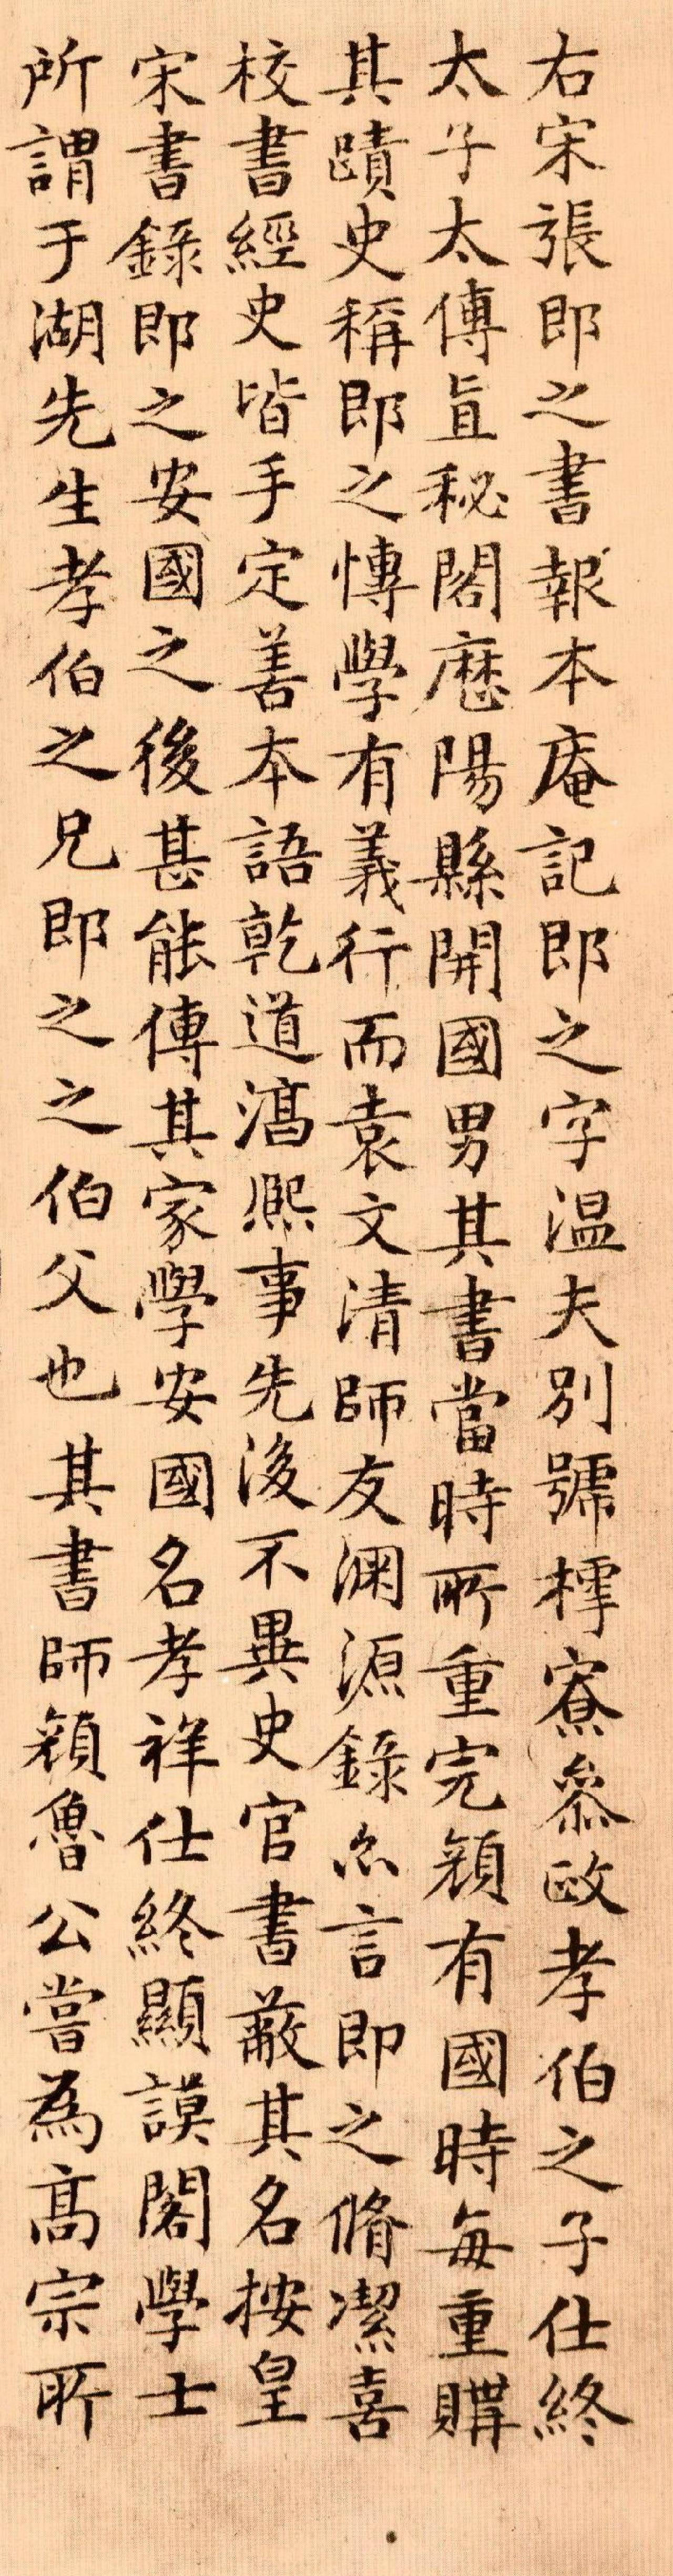 右宋張即之書報本庵記即之字温夫別號樗寮叅政孝伯之子仕終
太子太傅直秘閣歷陽縣開國男其書當時所重完顔有國時每重購
其蹟史稱即之博學有義行而袁文清師友淵源錄亦言即之脩潔喜
校書經史皆手定善本語乾道淳熙事先後不異史官書蔽其名按皇
宋書錄即之安國之後甚能傳其家學安國名孝祥仕終顯謨閣學士
所謂于湖先生孝伯之兄即之之伯父也其書師顔魯公嘗為高宗所